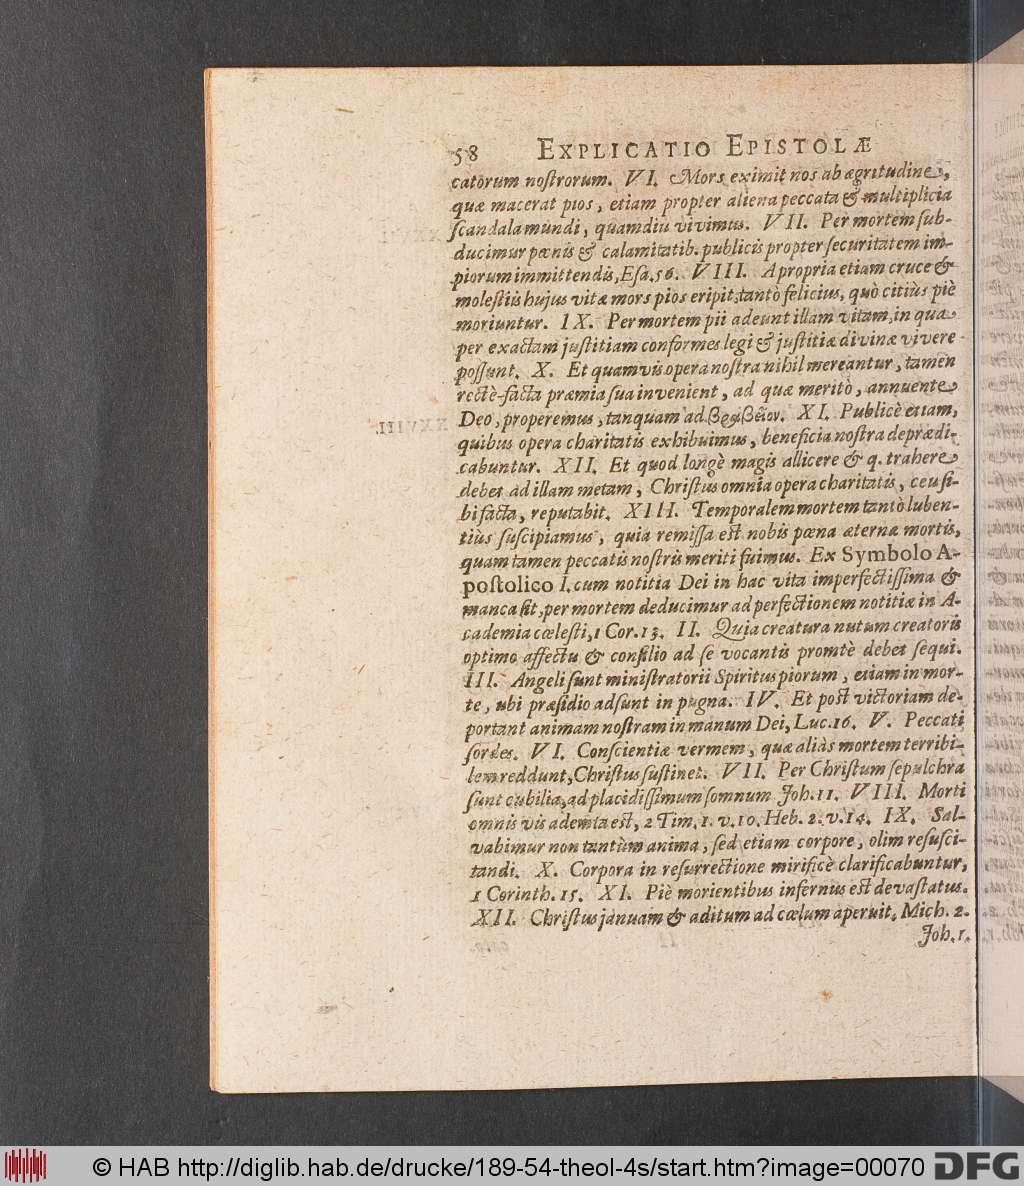 58 EXPLICATIO EPISTOLÆ
catorum noſtrorum. VI. Mors eximit nos ab ægritudine,
quæ macerat pios, etiam propter aliena peccata & multiplicia
ſcandala mundi, quamdiu vivimus. VII. Per mortem ſub-
ducimur pœnis & calamitatib. publicis propter ſecuritatem im-
piorum immittendis, Eſa. 56. VIII. A propria etiam cruce &
moleſtiis hujus vitæ mors pios eripit, tantò felicius, quò citiùs piè
moriuntur. IX. Per mortem pii adeunt illam vitam, in qua
per exactam juſtitiam conformes legi & juſtitiæ divinæ vivere
poſſunt. X. Et quamvis opera noſtra nihil mereantur, tamen
rectè-facta præmia ſua invenient, ad quæ meritò, annuente
Deo, properemus, tanquam ad βραβεῖον. XI. Publicè etiam,
quibus opera charitatis exhibuimus, beneficia noſtra deprædi-
cabuntur. XII. Et quod longè magis allicere & q. trahere
debet ad illam metam, Chriſtus omnia opera charitatis, ceu ſi-
bi facta, reputabit. XIII. Temporalem mortem tantò luben-
tiùs ſuſcipiamus, quia remiſſa est nobis pœna æternæ mortis,
quam tamen peccatis noſtris meriti fuimus. Ex Symbolo A-
poſtolico I. cum notitia Dei in hac vita imperfectiſſima &
manca ſit, per mortem deducimur ad perfectionem notitiæ in A-
cademia cœleſti, 1 Cor. 13. II. Quia creatura nutum creatoris
optimo affectu & conſilio ad ſe vocantis promtè debet ſequi.
III. Angeli ſunt miniſtratorii Spiritus piorum, etiam in mor-
te, ubi præſidio adſunt in pugna. IV. Et post victoriam de-
portant animam noſtram in manum Dei, Luc. 16. V. Peccati
ſordes. VI. Conſcientiæ vermem, quæ aliàs mortem terribi-
lem reddunt, Chriſtus ſuſtinet. VII. Per Chriſtum ſepulchra
ſunt cubilia, ad placidiſſimum ſomnum Joh. 11. VIII. Morti
omnis vis ademta est, 2 Tim. 1. v. 10. Heb. 2. v. 14. IX. Sal-
vabimur non tantùm anima, ſed etiam corpore, olim reſuſci-
tandi. X. Corpora in reſurrectione mirificè clarificabuntur,
1 Corinth. 15. XI. Piè morientibus infernus est devaſtatus.
XII. Chriſtus januam & aditum ad cœlum aperuit, Mich. 2.
Joh. 1.
© HAB http://diglib.hab.de/drucke/189-54-theol-4s/start.htm?image=00070 DFG